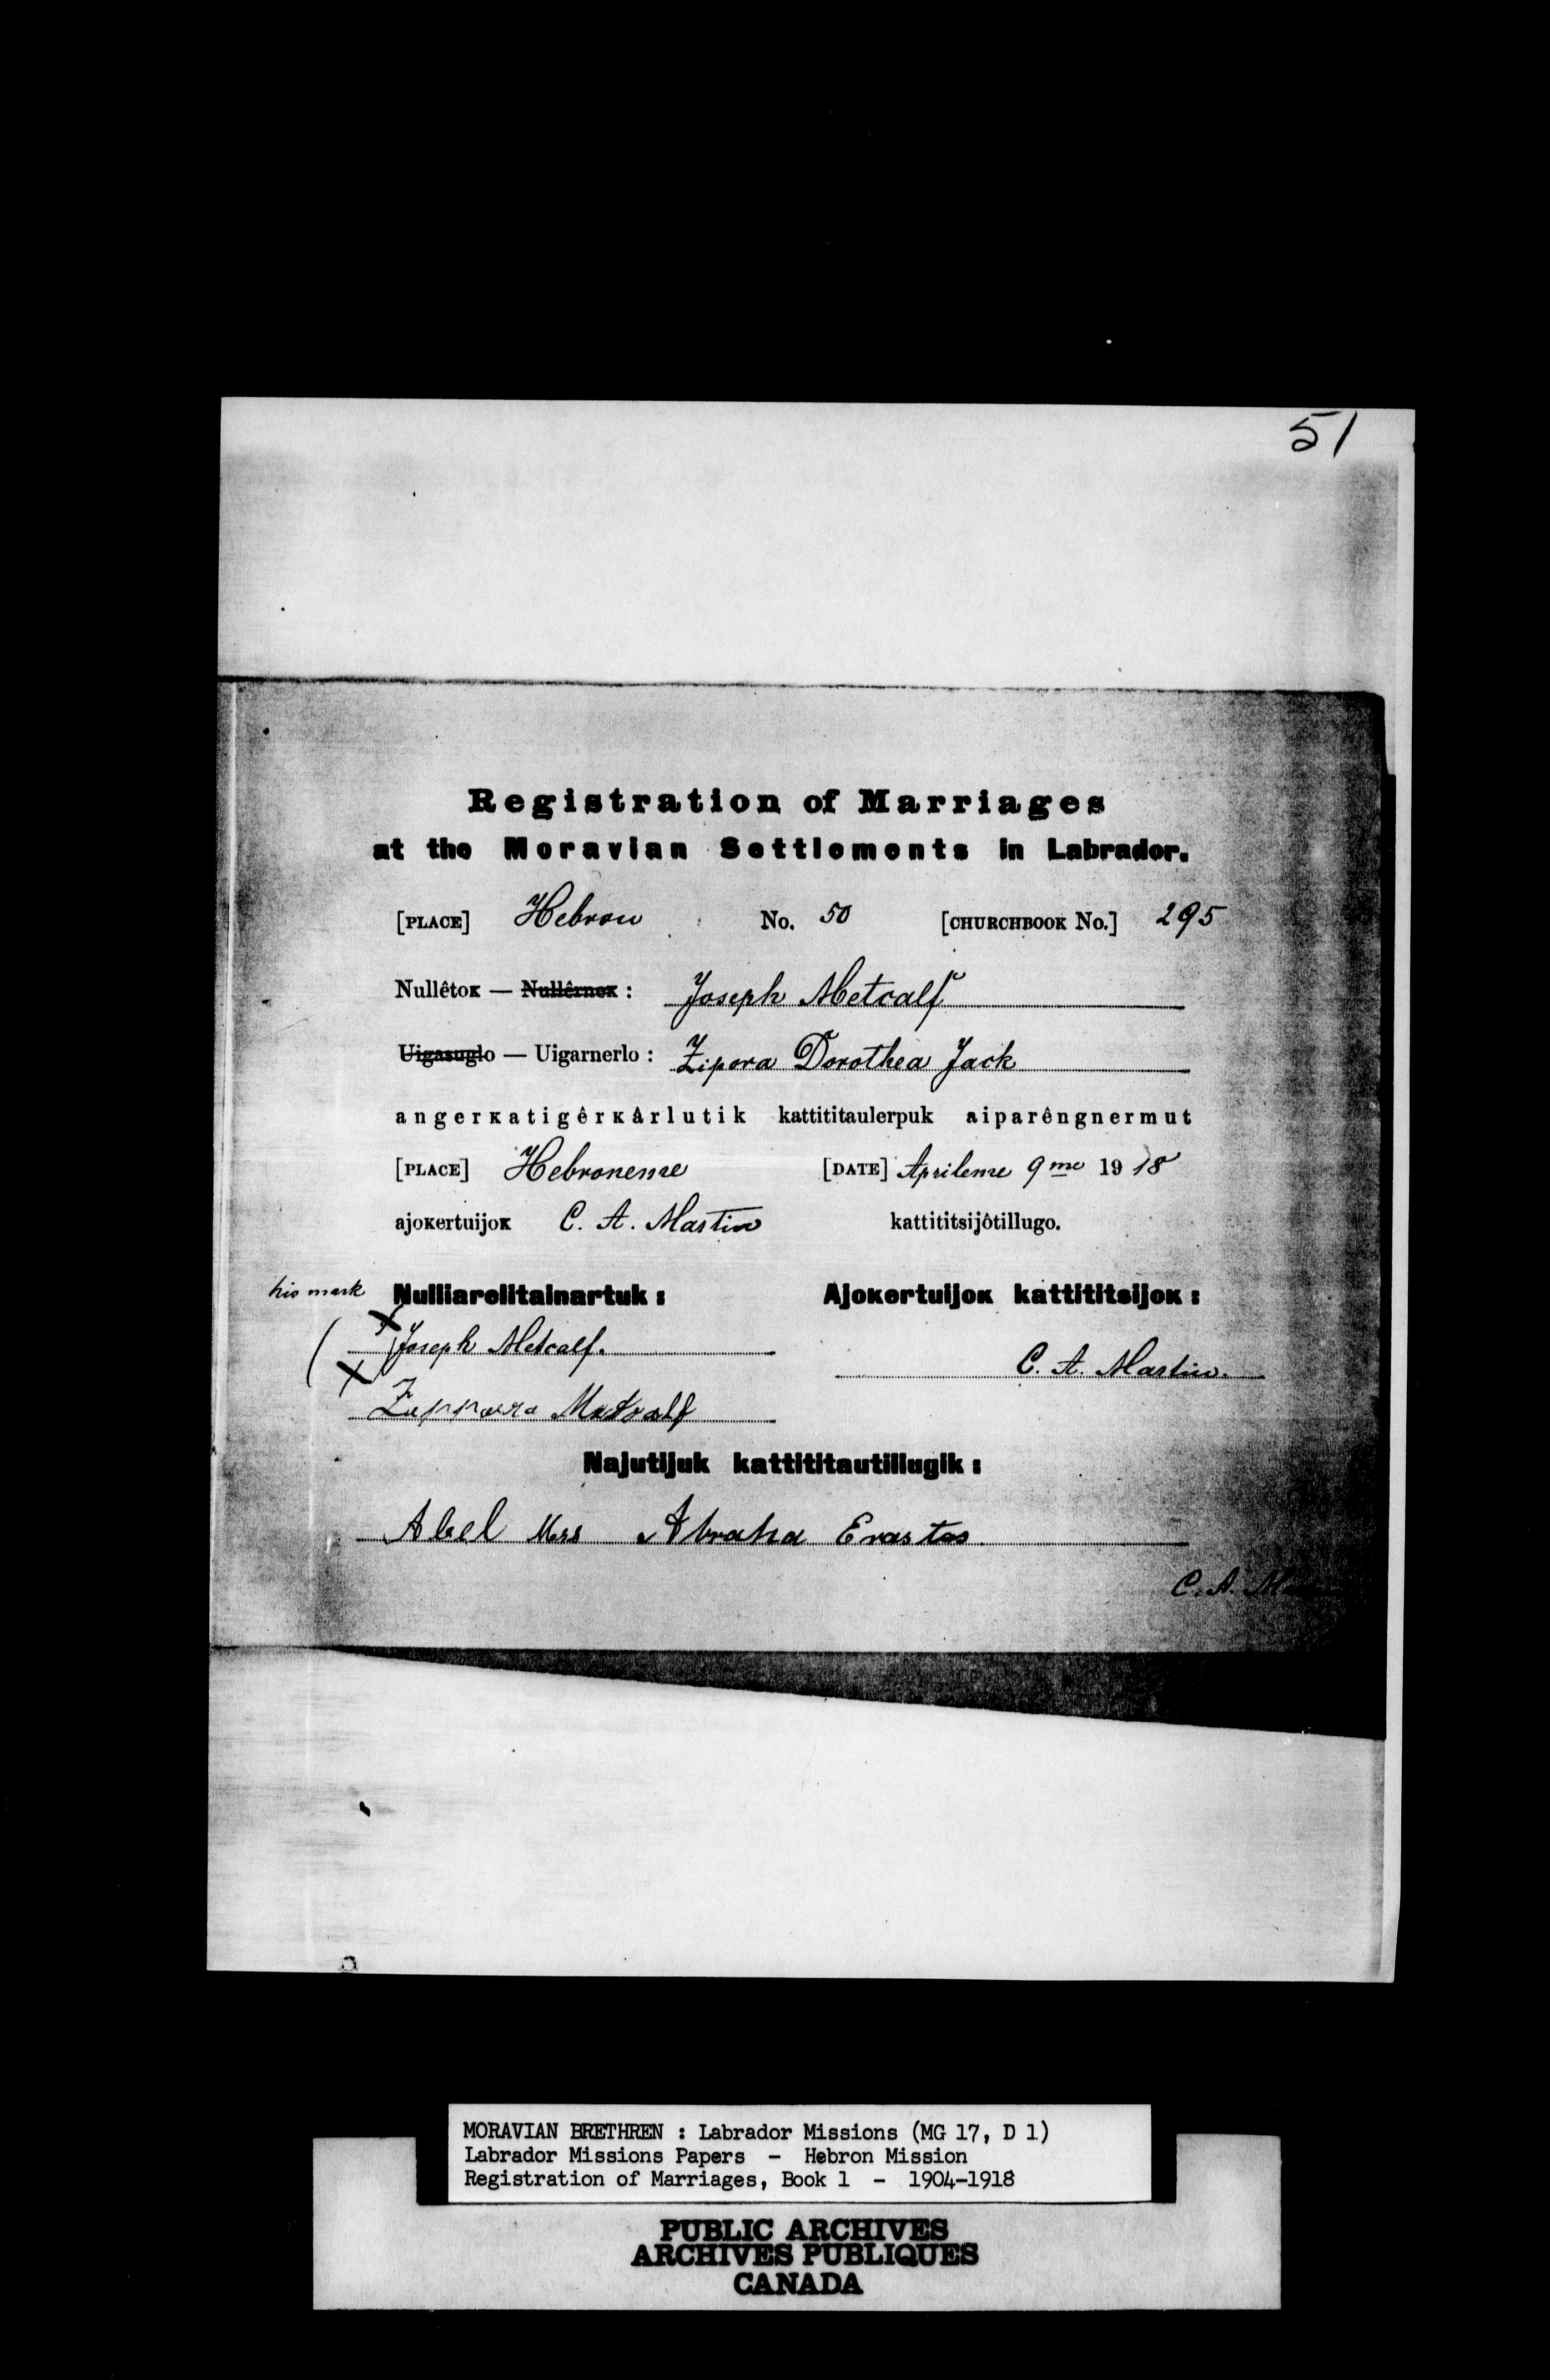 51
Registration of Marriages
at the Moravian Settlements in Labrador.
[PLACE] Hebron No. 50 [CHURCHBOOK No.] 295
Nullêtoĸ — Nullêrnoĸ : Joseph Metcalf
Uigasuglo — Uigarnerlo : Zipora Dorothea Jack
angerĸatigêrĸârlutik kattititaulerpuk aiparêngnermut
[PLACE] Hebroneme [DATE] Aprileme 9me 1918
ajoĸertuijoĸ C. A. Martin kattititsijôtillugo.
his mark Nulliarelitainartuk : Ajoĸertuijoĸ kattititsijoĸ :
( X Joseph Metcalf.
X C. A. Martin.
Zipporra Metcalf
Najutijuk kattititautillugik :
Abel Abraha Erastos
C. A.
MORAVIAN BRETHREN : Labrador Missions (MG 17, D 1)
Labrador Missions Papers - Hebron Mission
Registration of Marriages, Book 1 - 1904-1918
PUBLIC ARCHIVES
ARCHIVES PUBLIQUES
CANADA